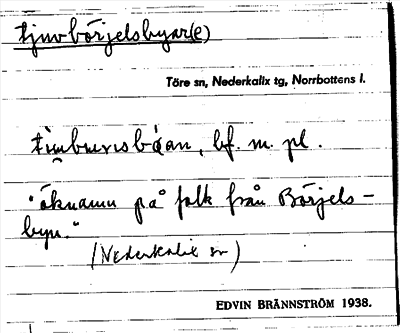 tjuvbörjelsbyar(e)
Töre sn, Nederkalix tg, Norrbottens l.
bf. m. pl.
"öknamn på folk från Börjels-
byn."
(Nederkalix sn)
EDVIN BRÄNNSTRÖM 1938.